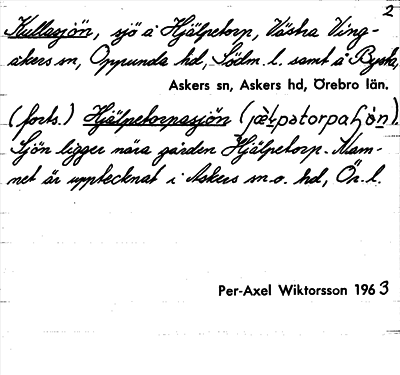 2
Kullasjön, sjö å Hjälpetorp, Västra Ving-
åkers sn, Oppunda hd, Södm. l. samt å Bysta,
Askers sn, Askers hd, Örebro län.
(forts.) Hjälpetorpasjön
Sjön ligger nära gården Hjälpetorp. Nam-
net är upptecknat i Askers sn o. hd, Ör. l.
Per-Axel Wiktorsson 1963